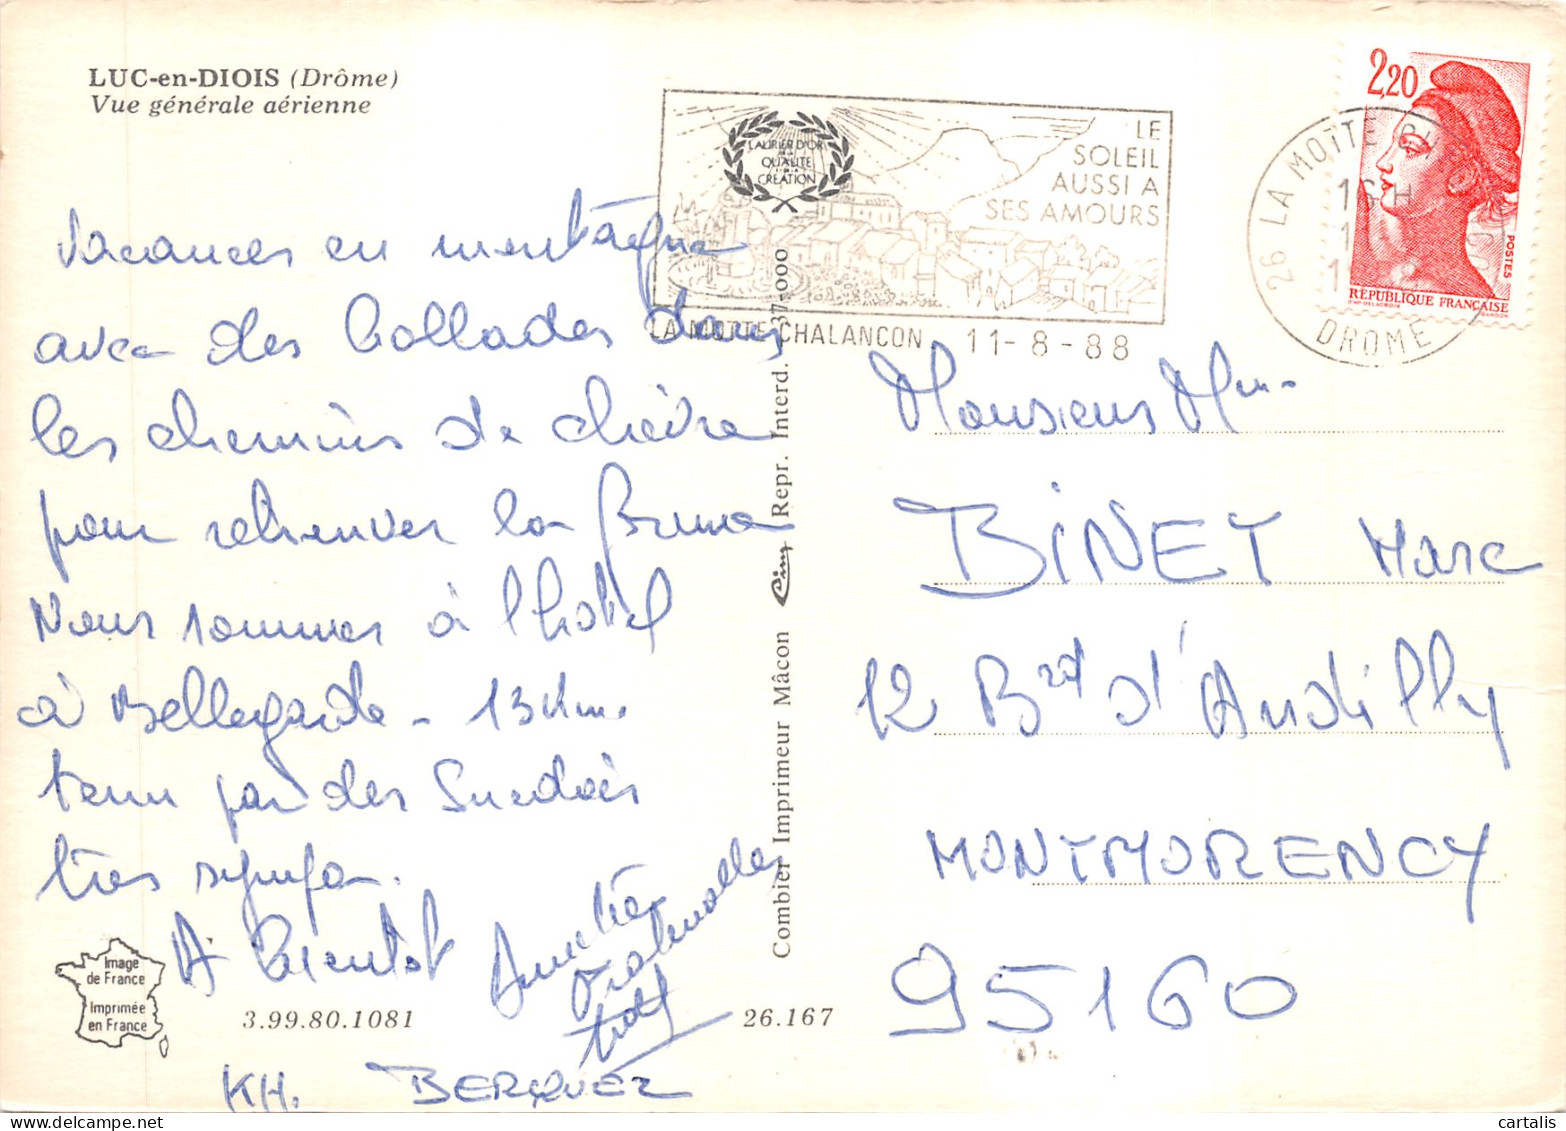 LUC-en-DIOIS (Drôme)
Vue générale aérienne
LAURIER D'OR
QUALITE
CREATION
LE
SOLEIL
AUSSI A
SES AMOURS
LA MOTTE CHALANCON 11-8-88
26 LA MOTTE CH
16 H
DROME
2,20
POSTES
RÉPUBLIQUE FRANÇAISE
GANDON
Vacances en montagne
avec des Ballades dans
les chemins de chèvre
pour retrouver la Brume
Nous sommes à l'hotel
à Bellegarde - 13 km
tenu par des Suedois
très sympa.
A Bientot
KH. BERQUEZ
Combier Imprimeur Mâcon Cim Repr. Interd. 37-000
Image
de France
Imprimée
en France
3.99.80.1081
26.167
Monsieur Mm
BINET Marc
12 Brd d'Andilly
MONTMORENCY
95160
cartalis